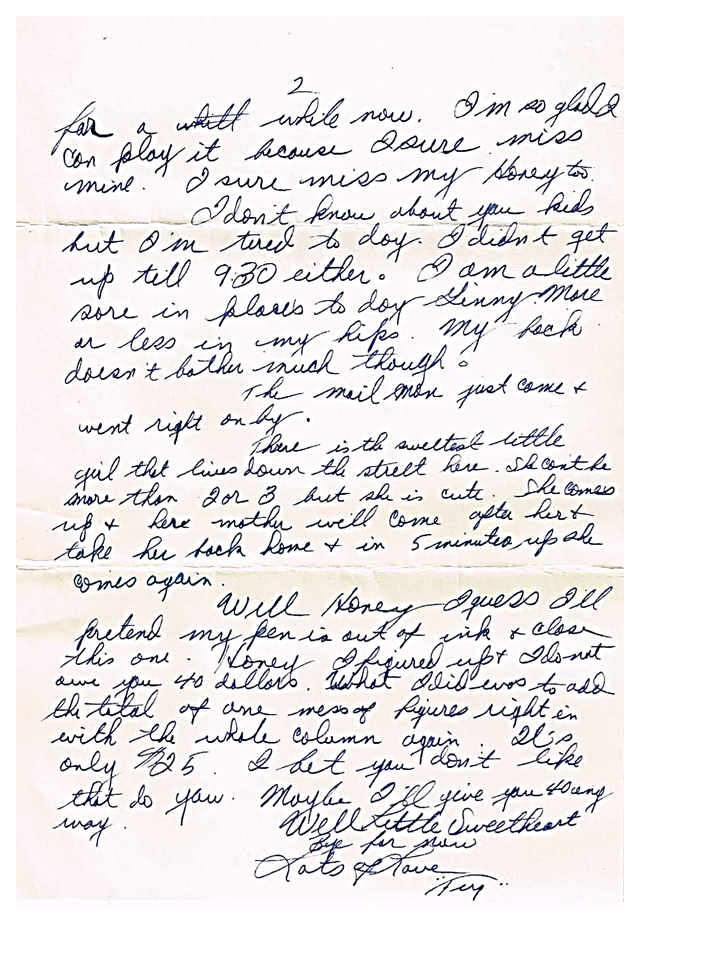 2
for a whill while now. I'm so glad I
can play it because I sure miss
mine. I sure miss my Honey too.
I don't know about you kids
but I'm tired to day. I didn't get
up till 9:30 either. I am a little
sore in places to day Ginny More
or less in my hips. My back
doesn't bother much though.
The mail man just come &
went right on by.
There is the sweetest little
girl that lives down the street here. She cant be
more than 2 or 3 but she is cute. She comes
up & here mother will come after her &
take her back home & in 5 minutes up she
comes again.
Well Honey I guess I'll
pretend my pen is out of ink & close
this one. Honey I figured up & I do not
owe you 40 dollars. What I did was to add
the total of one mess of figures right in
with the whole column again. It's
only $25. I bet you don't like
that do you. Maybe I'll give you 40 any
way. Well Little Sweetheart
Bye for now
Lots of Love